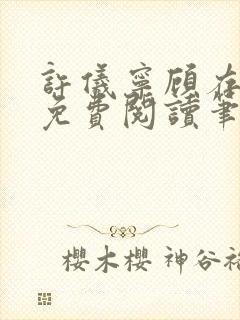 許儀寧顧在
免費閱讀筆
櫻木櫻 神谷裕